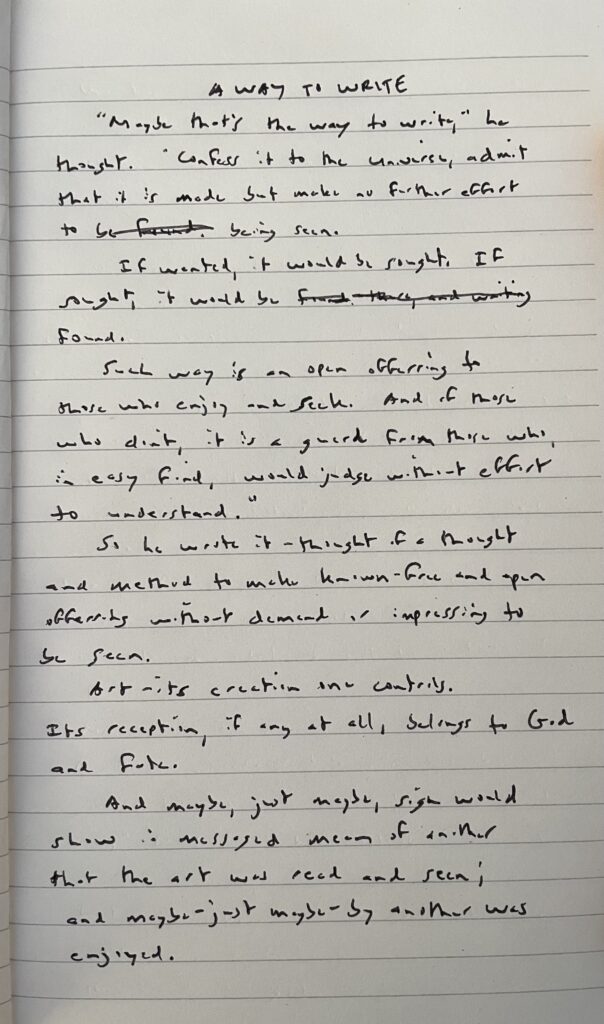 A WAY TO WRITE
"Maybe that's the way to write," he
thought. "Confess it to the universe, admit
that it is made but make no further effort
to be found. being seen.
If wanted, it would be sought. If
sought, it would be found
found.
Such way is an open offerring to
those who enjoy and seek. And of those
who don't, it is a guard from those who,
in easy find, would judge without effort
to understand."
So he wrote it - thought of a thought
and method to make known - free and open
offerring without demand or impressing to
be seen.
Art - its creation one controls.
Its reception, if any at all, belongs to God
and Fate.
And maybe, just maybe, sign would
show in messaged mean of another
that the art was read and seen;
and maybe - just maybe - by another was
enjoyed.